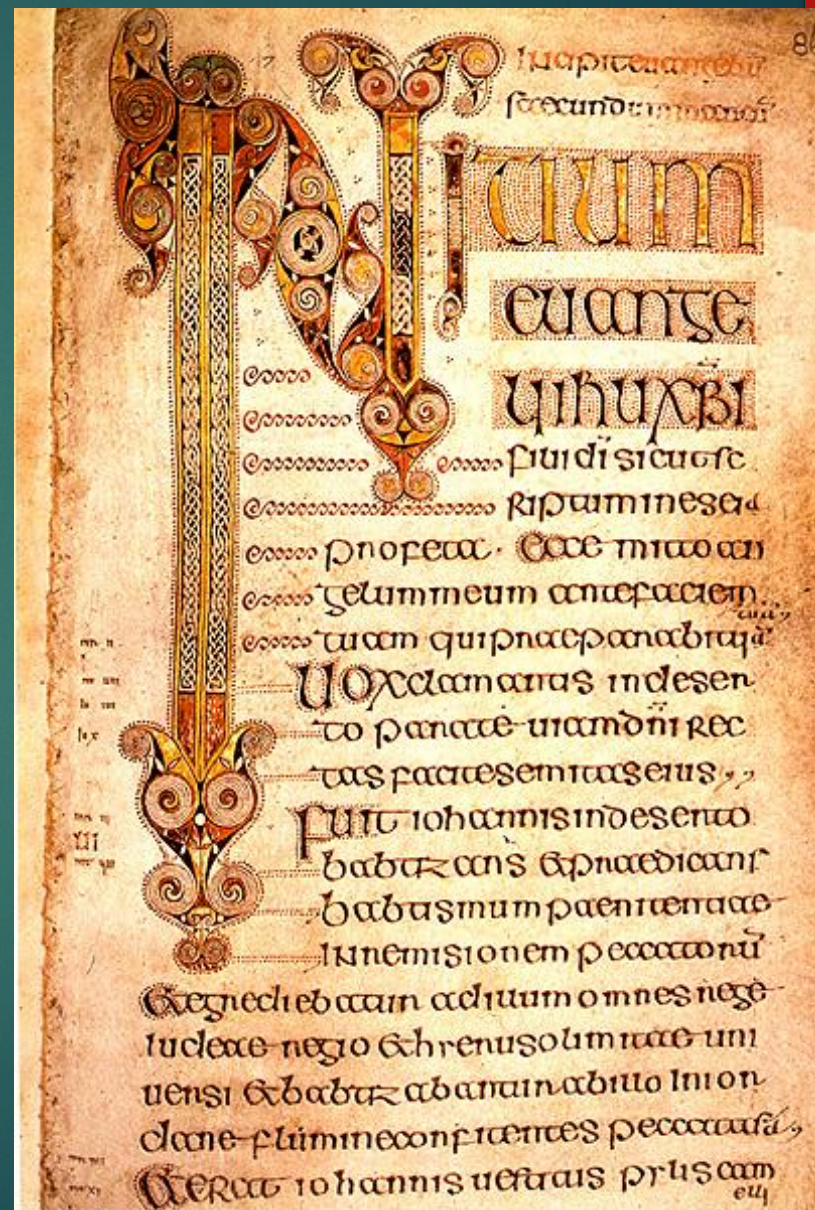 INITIUM
euange
lii ihu xpi
filii di sicut sc
riptum in eseia
profeta · Ecce mitto an
gelum meum ante faciem
tuam qui praeparabit uiā tuā,,
Uox clamantis in deser
to parate uiam dn̄i rec
tas facite semitas eius,,
fuit iohannis in deserto
babtizans & praedicans
babtismum paenitentiae
in remisionem peccatorū
& egrediebatur ad illum omnes rege
iudeae regio & hierusolimitae uni
uersi & babtizabantur ab illo in ior
dane flumine confitentes peccata sua,,
& erat iohannis uestitus pylis cam
eli